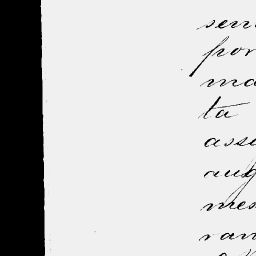 sen
por
ma
ta
asse
aug
mes
ran